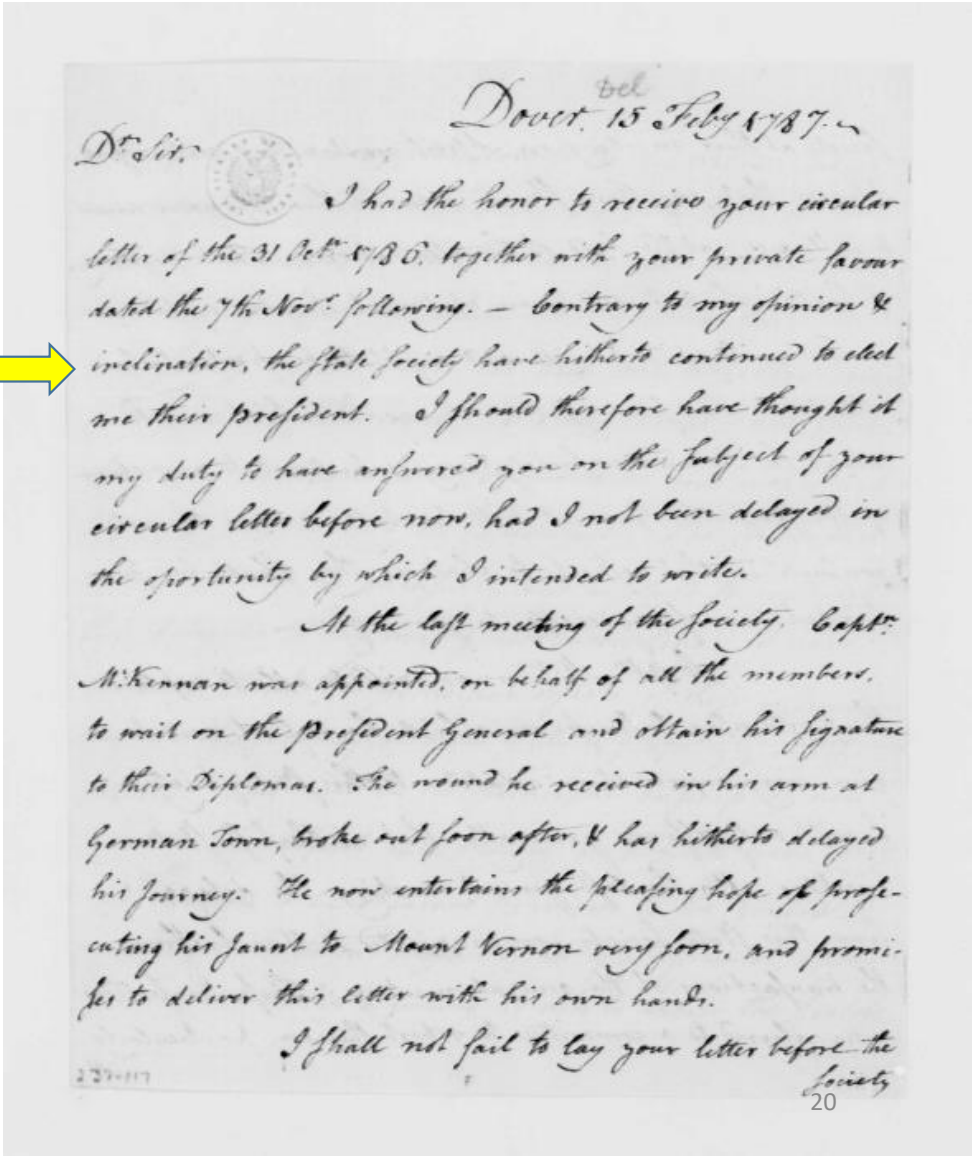 Del
Dover. 15 Feby 1787.
Dr Sir.
I had the honor to receive your circular
letter of the 31 Octr 1786. together with your private favour
dated the 7th Novr following. — Contrary to my opinion &
inclination, the State Society have hitherto continued to elect
me their president. I should therefore have thought it
my duty to have answered you on the subject of your
circular letter before now, had I not been delayed in
the oportunity by which I intended to write.
At the last meeting of the Society. Captn
McKennan was appointed, on behalf of all the members,
to wait on the President General and obtain his signature
to their Diplomas. The wound he received in his arm at
German Town, broke out soon after, & has hitherto delayed
his Journey. He now entertains the pleasing hope of prose-
cuting his Jaunt to Mount Vernon very soon, and promi-
ses to deliver this letter with his own hands.
I shall not fail to lay your letter before the
Society
20